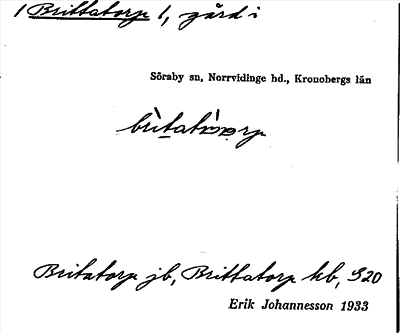 1 Brittatorp 1, gård i
Söraby sn, Norrvidinge hd., Kronobergs län
Britatorp jb, Brittatorp kb, S20
Erik Johannesson 1933